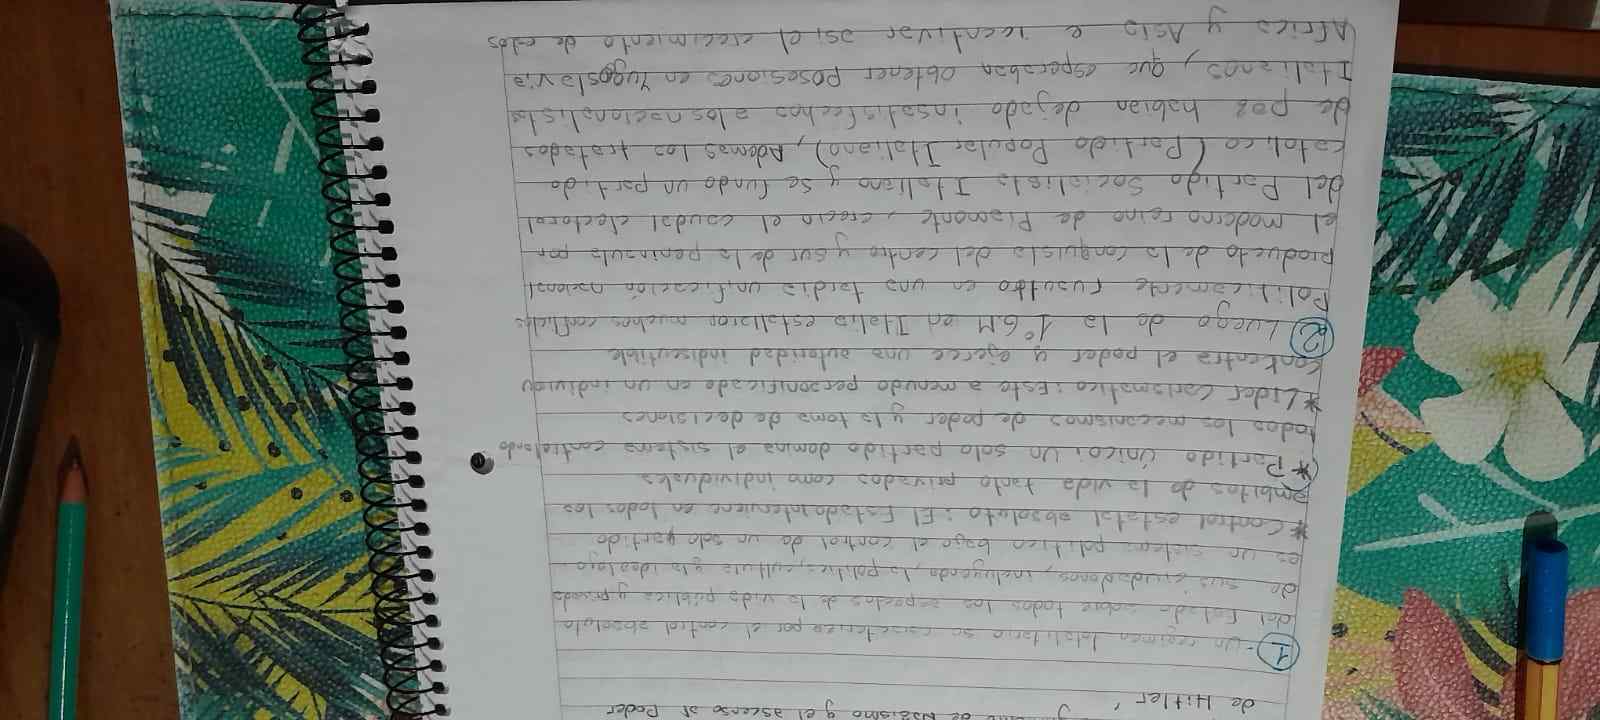 de Nazismo y el ascenso al Poder
de Hitler"
1- Un regimen totalitario se caracteriza por el control absoluto
del Estado sobre todos los aspectos de la vida pública y privada
de sus ciudadanos, incluyendo, la politica, cultura y la ideologia
es un sistema politico bajo el control de un solo partido
* Control estatal absoluto: El Estado interviene en todos los
ambitos de la vida tanto privados como individuales
* Partido Único: Un solo partido domina el sistema controlando
todos los mecanismos de poder y la toma de decisiones
* Lider Carismatico: Esta a menudo personificado en un individuo
concentra el poder y ejerce una autoridad indiscutible
2 Luego de la 1° G.M en Italia estallaron muchos conflictos
Politicamente en una tardia unificación nacional
producto de la conquista del centro y sur de la peninsula por
el moderno reino de Piamonte, crecia el caudal electoral
del Partido Socialista Italiano y se fundo un partido
catolico (Partido Popular Italiano), Ademas los tratados
de paz habian dejado insatisfechos a los nacionalistas
Italianos, que esperaban obtener posesiones en Yugoslavia
Africa y Asia e incentivar asi el crecimiento de estos